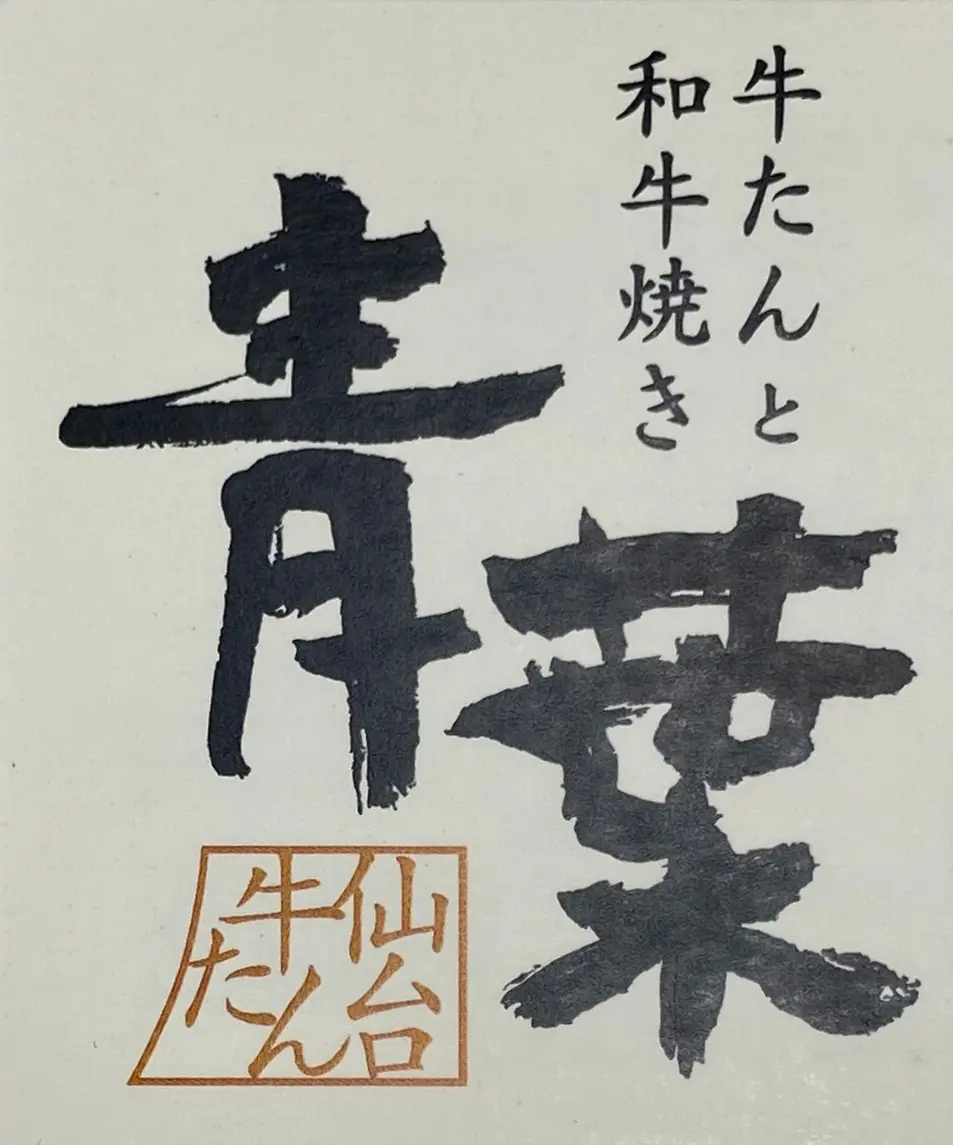 牛たんと
和牛焼き
青葉
仙台
牛たん